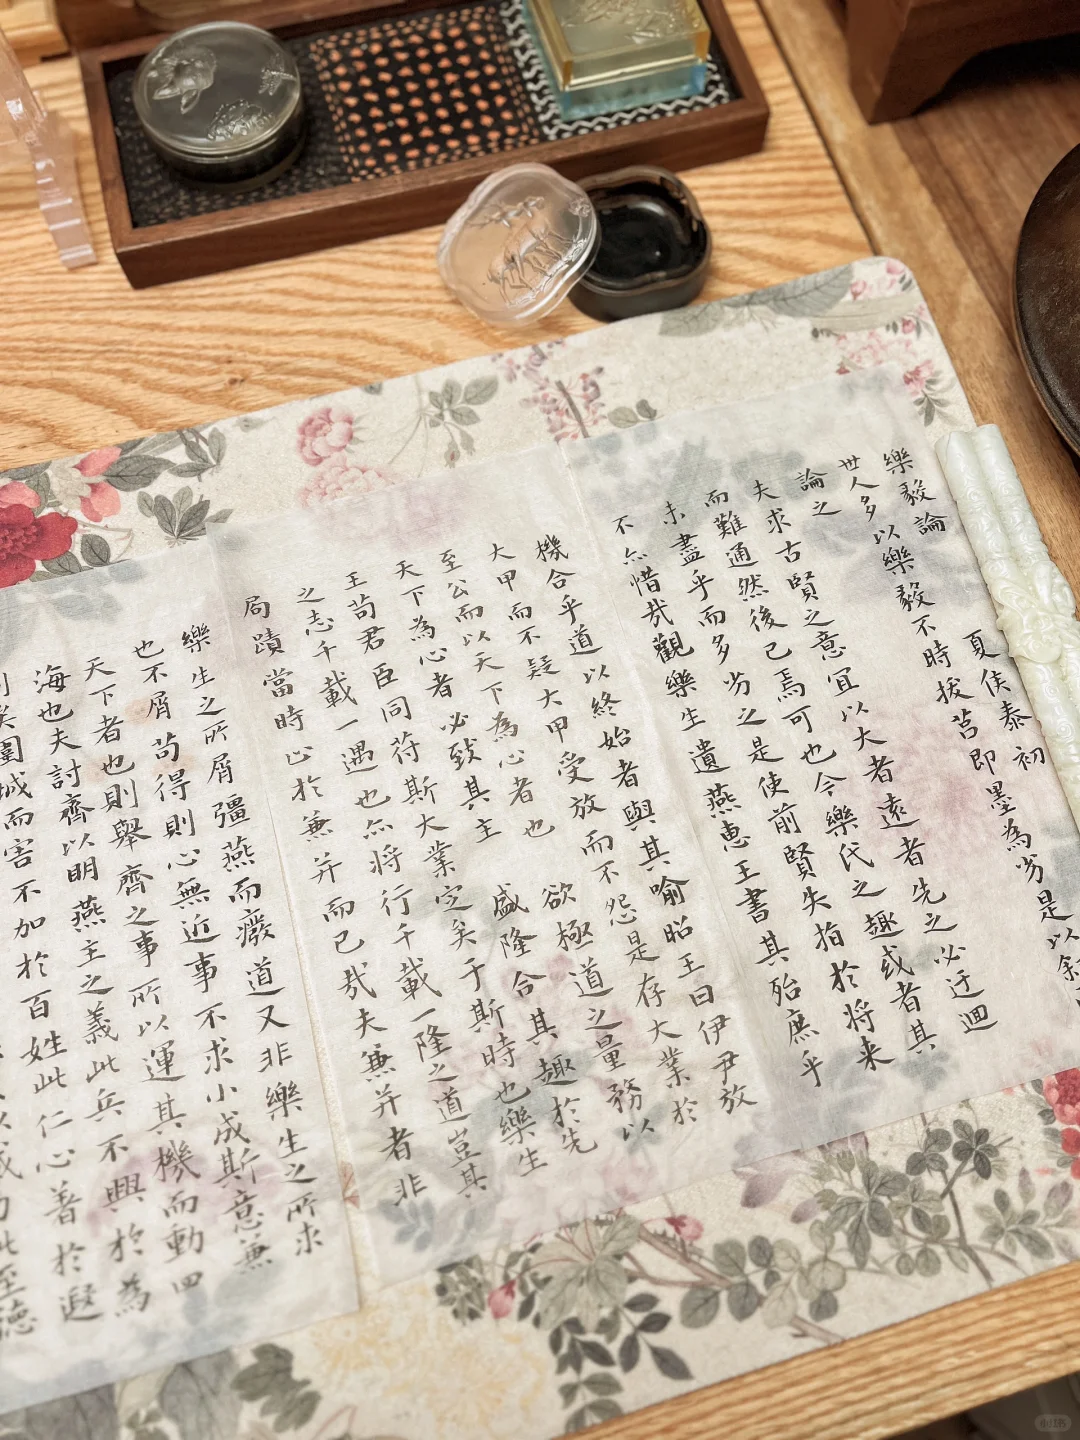 樂毅論 夏侯泰初
世人多以樂毅不時拔莒即墨為劣是以叙
論之
夫求古賢之意宜以大者遠者先之必迂迴
而難通然後已焉可也今樂氏之趣或者其
未盡乎而多劣之是使前賢失指於將来
不亦惜哉觀樂生遺燕惠王書其殆庶乎
機合乎道以終始者與其喻昭王曰伊尹放
大甲而不疑大甲受放而不怨是存大業於
至公而以天下為心者也 欲極道之量務以
天下為心者必致其主 盛隆合其趣於先
王苟君臣同苻斯大業定矣于斯時也樂生
之志千載一遇也亦將行千載一隆之道豈其
局蹟當時止於兼并而已哉夫兼并者非
樂生之所屑彊燕而癈道又非樂生之所求
也不屑苟得則心無近事不求小成斯意兼
天下者也則舉齊之事所以運其機而動四
海也夫討齊以明燕主之義此兵不興於為
利矣圍城而害不加於百姓此仁心著於遐
此至德